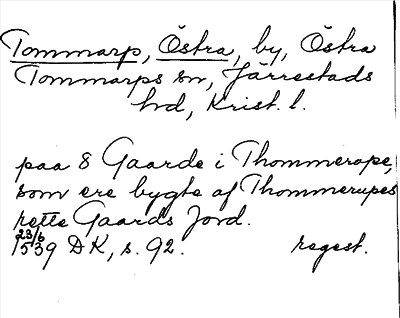 Tommarp, Östra, by, Östra
Tommarps sn, Järrestads
hd, Krist. l.
paa 8 Gaarde i Thommerope,
som ere bygte af Thommerupes
rette Gaards Jord.
23/6
1539 DK, s. 92. regest.